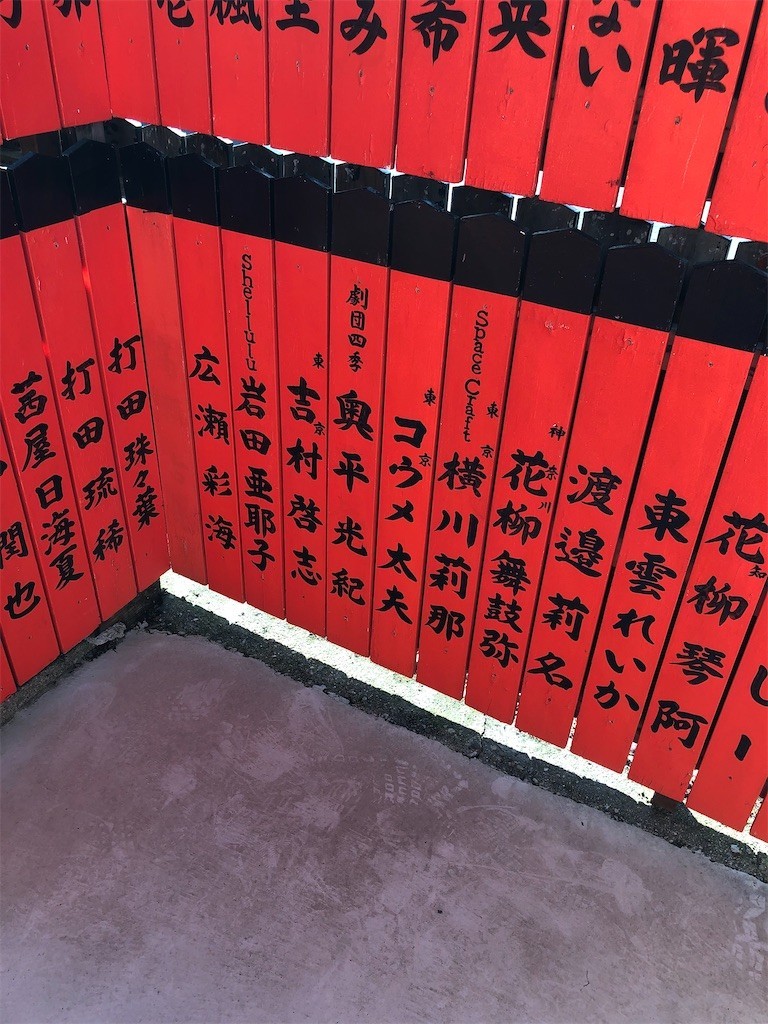 希
央
ない
暉
閏也
茜屋日海夏
打田琉稀
打田珠々葉
広瀬彩海
Shellulu 岩田亜耶子
東京 吉村啓志
劇団四季 奥平光紀
東京 コウメ太夫
Space Craft 東京 横川莉那
神奈川 花柳舞鼓弥
渡邉莉名
東雲れいか
花柳琴阿